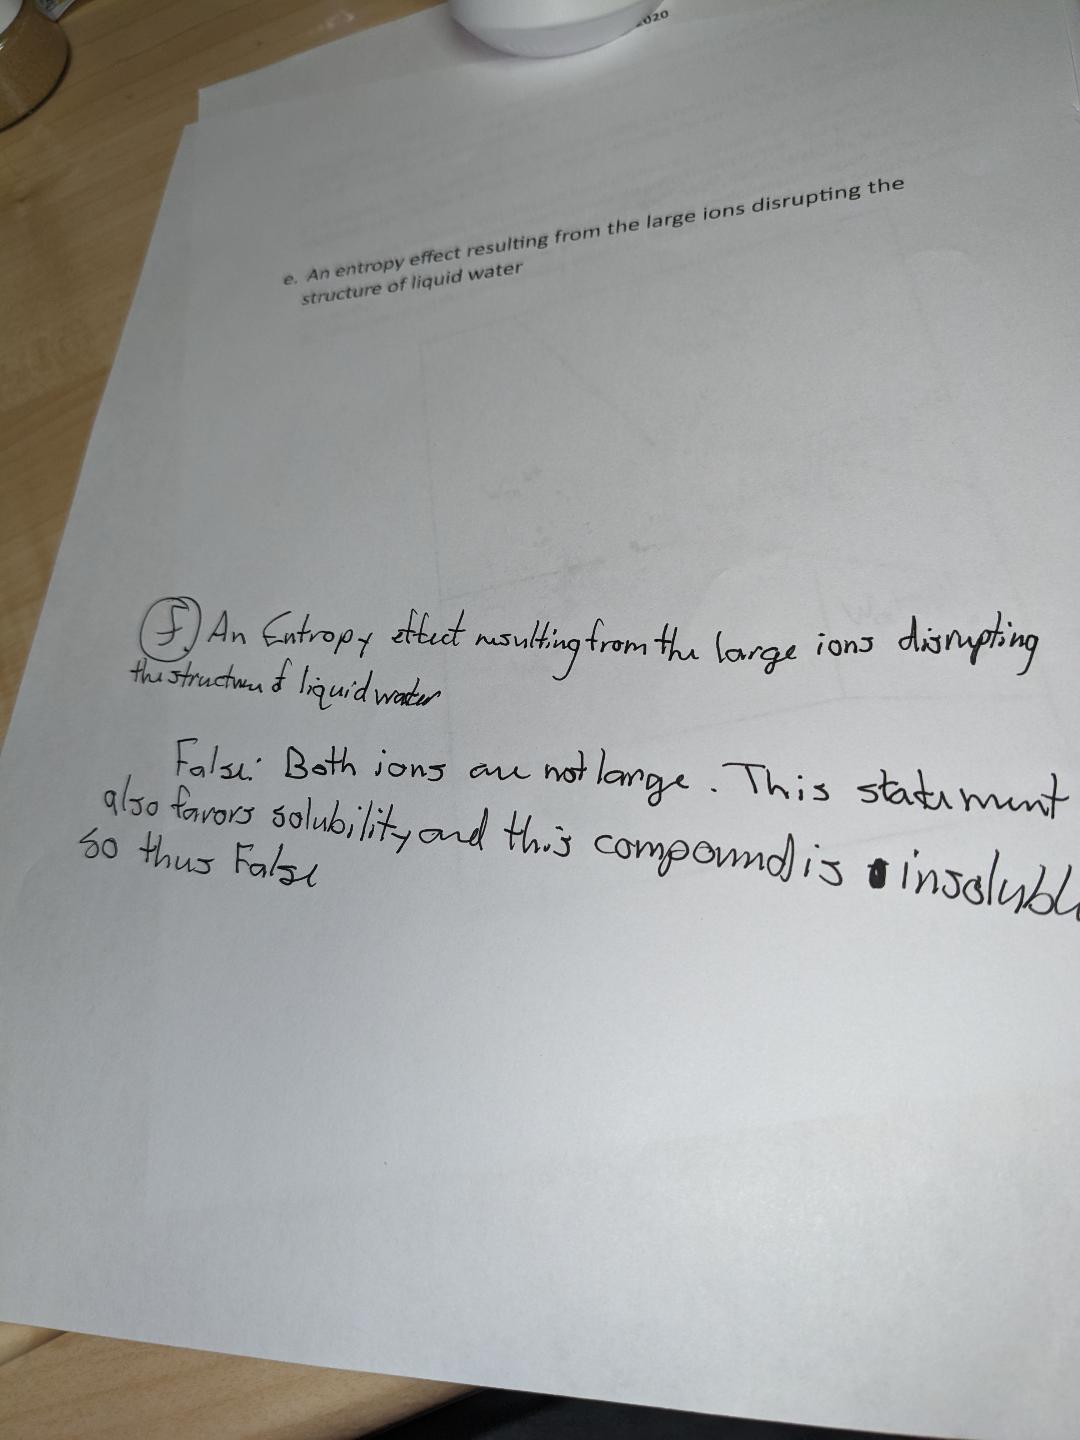 020
e. An entropy effect resulting from the large ions disrupting the
structure of liquid water
f. An Entropy effect resulting from the large ions disrupting
the structure of liquid water
False: Both ions are not large. This statement
also favors solubility and this compound is insoluble
so thus False